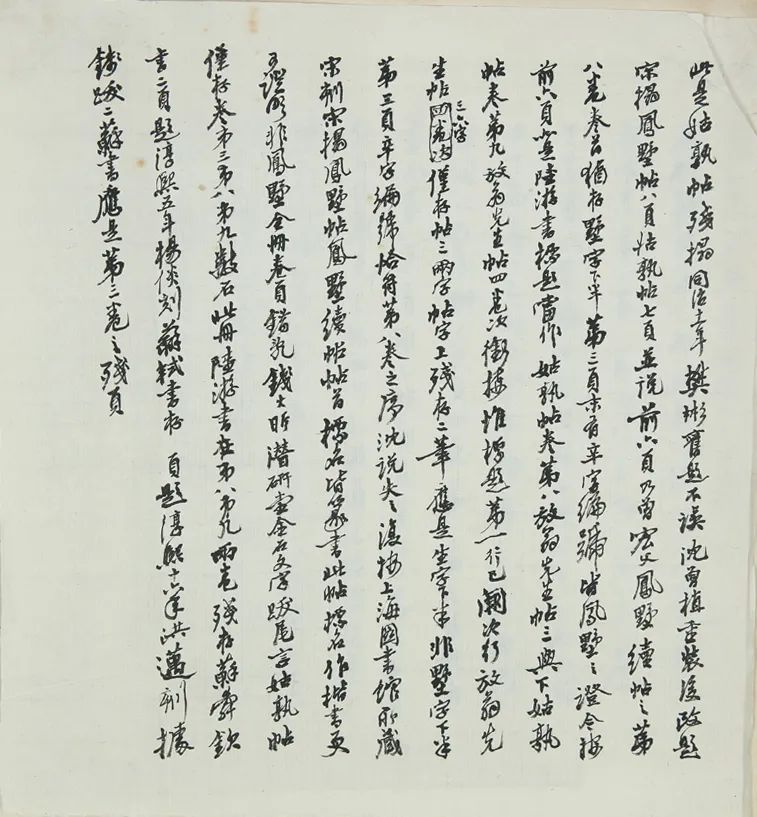 此是姑孰帖殘搨同治十二年樊彬舊題不誤沈曾植重裝後改題
宋搨鳳墅帖八頁姑孰帖七頁並說前六頁乃曾宏父鳳墅續帖之第
八卷卷首猶存墅字下半第三頁亦有平字編號皆鳳墅之證今按
前六頁並陸游書標題當作姑孰帖卷第八放翁先生帖三與下姑孰
帖卷第九放翁先生帖四卷次銜接惟標題第一行已闕次行放翁先
生帖
三六字
僅存帖三兩字帖字上殘存二筆應是生字下半非墅字下半
第三頁平字編號恰符第八卷之序沈說失之復按上海圖書館所藏
宋刻宋搨鳳墅帖鳳墅續帖帖首標名皆篆書此帖標名作楷書更
可證明非鳳墅全冊卷頁錯亂錢大昕潛研堂金石文字跋尾言姑孰帖
僅存卷第三第八第九數石此冊陸游書在第八第九兩卷殘存蘇舜欽
書二頁題淳熙五年楊倓刻蘇軾書存 頁題淳熙十六年洪邁刻據
錢跋二蘇書應是第三卷之殘頁